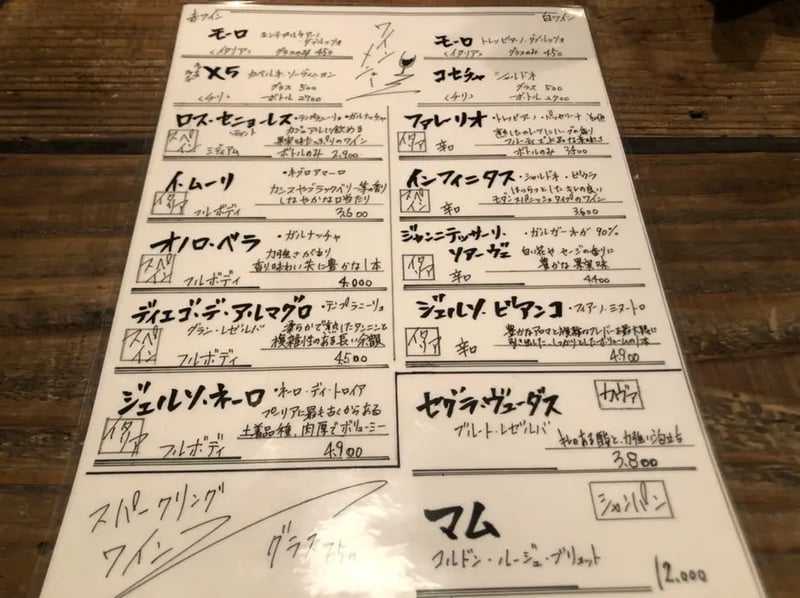 赤ワイン
白ワイン
ワインメニュー
モーロ モンテプルチアーノ・ダブルッツォ
<イタリア> グラスのみ 450
X5 カベルネ ソーヴィニヨン
グラス 500
<チリ> ボトル 2900
ロス・セニョーレス ・テンプラニーリョ・ガルナッチャ
スペイン
カジュアルに飲める
果実味たっぷりのワイン
ミディアム ボトルのみ 2,900
イ・ムーリ ・ネグロアマーロ
イタリア
カシスやブラックベリー等の香り
しなやかな口当たり
フルボディ 3.600
オノロ・ベラ ・ガルナッチャ
スペイン
力強さがあり
香り味わい共に豊かな1本
フルボディ 4.000
ディエゴ・デ・アルマグロ ・テンプラニーリョ
グラン・レゼルバ
スペイン
柔らかで熟したタンニンと
複雑性のある長い余韻
フルボディ 4.500
ジェルソ・ネーロ ・ネーロ・ディ・トロイア
イタリア
プーリアに最も古くからある
土着品種、肉厚でボリューミー
フルボディ 4.900
スパークリング
ワイン
グラス 650
モーロ トレッビアーノ・ダブルッツォ
<イタリア> グラスのみ 450
コセチャ シャルドネ
グラス 500
<チリ> ボトル 2900
ファレーリオ ・トレッビアーノ・パッセリーナ
イタリア
フルーティで上品な味わい
辛口 ボトルのみ 3400
インフィニタス ・シャルドネ・ビウラ
スペイン
はつらつとしたキレの良い
モダンスパニッシュタイプのワイン
辛口 3600
ジャンニテッサーリ・ ・ガルガーネガ 90%
ソアーヴェ
イタリア
白い花や、セージの香りに
豊かな果実味
辛口 4400
ジェルソ ビアンコ ・フィアーノ・ミヌートロ
イタリア
豊かなアロマと複雑なフレーバーを最大限に
引き出した、しっかりとしたボリュームの1本
辛口 4.900
セグラ・ヴューダス
カヴァ
ブルート・レゼルバ
キレのある酸と、力強い泡立ち
3.800
マム
シャンパン
コルドン・ルージュ・ブリュット
12.000